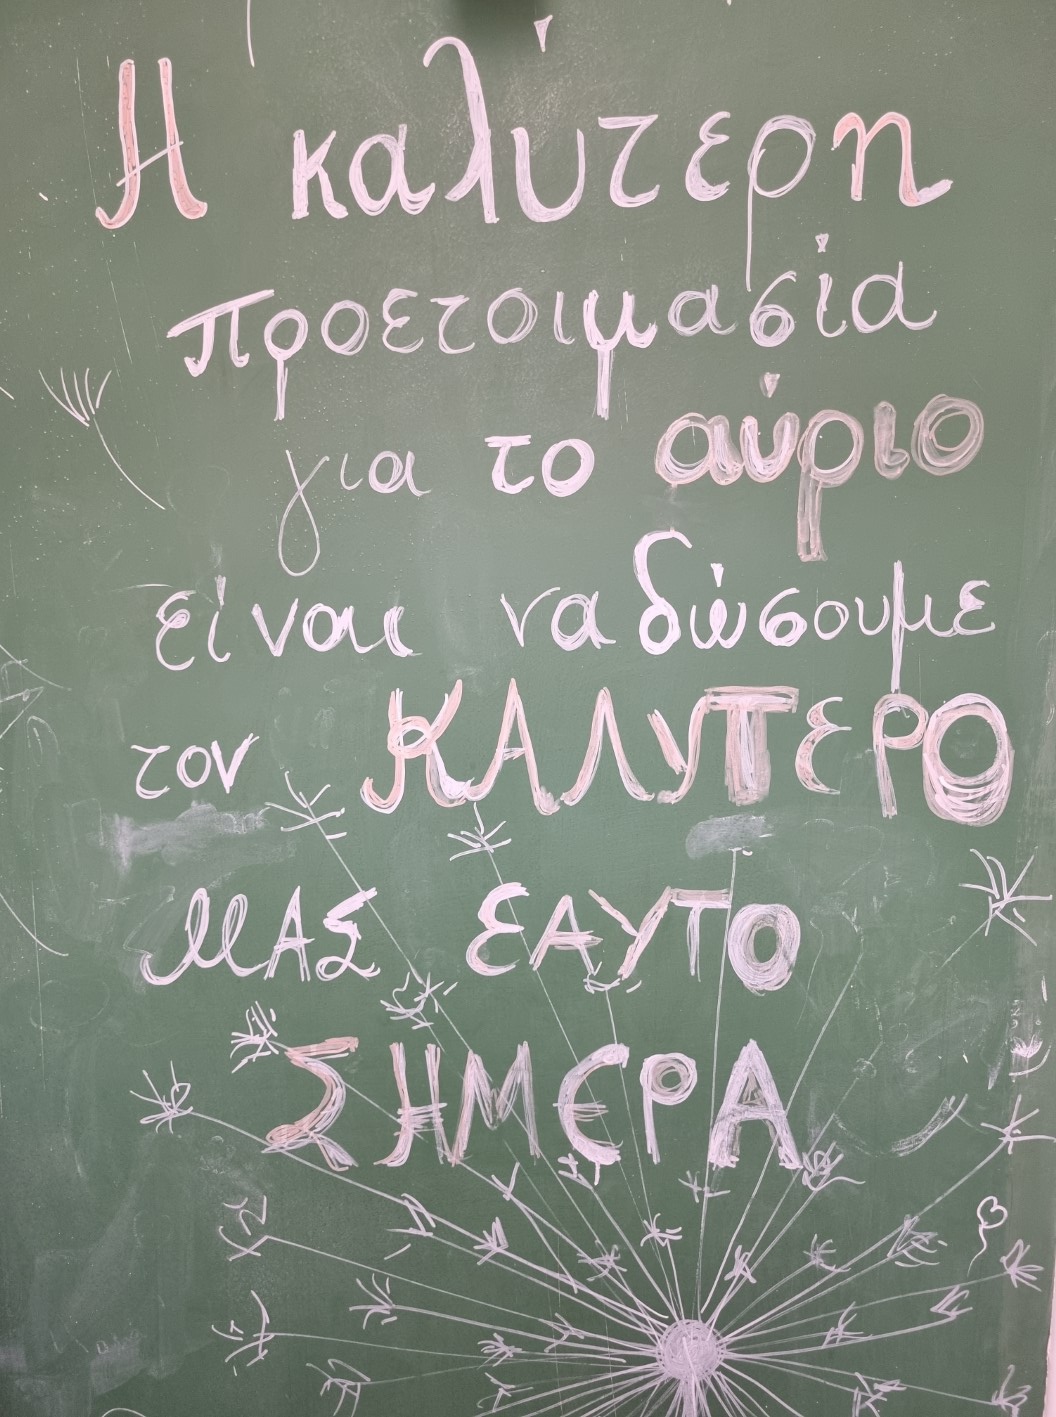 Η καλύτερη
προετοιμασία
για το αύριο
είναι να δώσουμε
τον ΚΑΛΥΤΕΡΟ
ΜΑΣ ΕΑΥΤΟ
ΣΗΜΕΡΑ